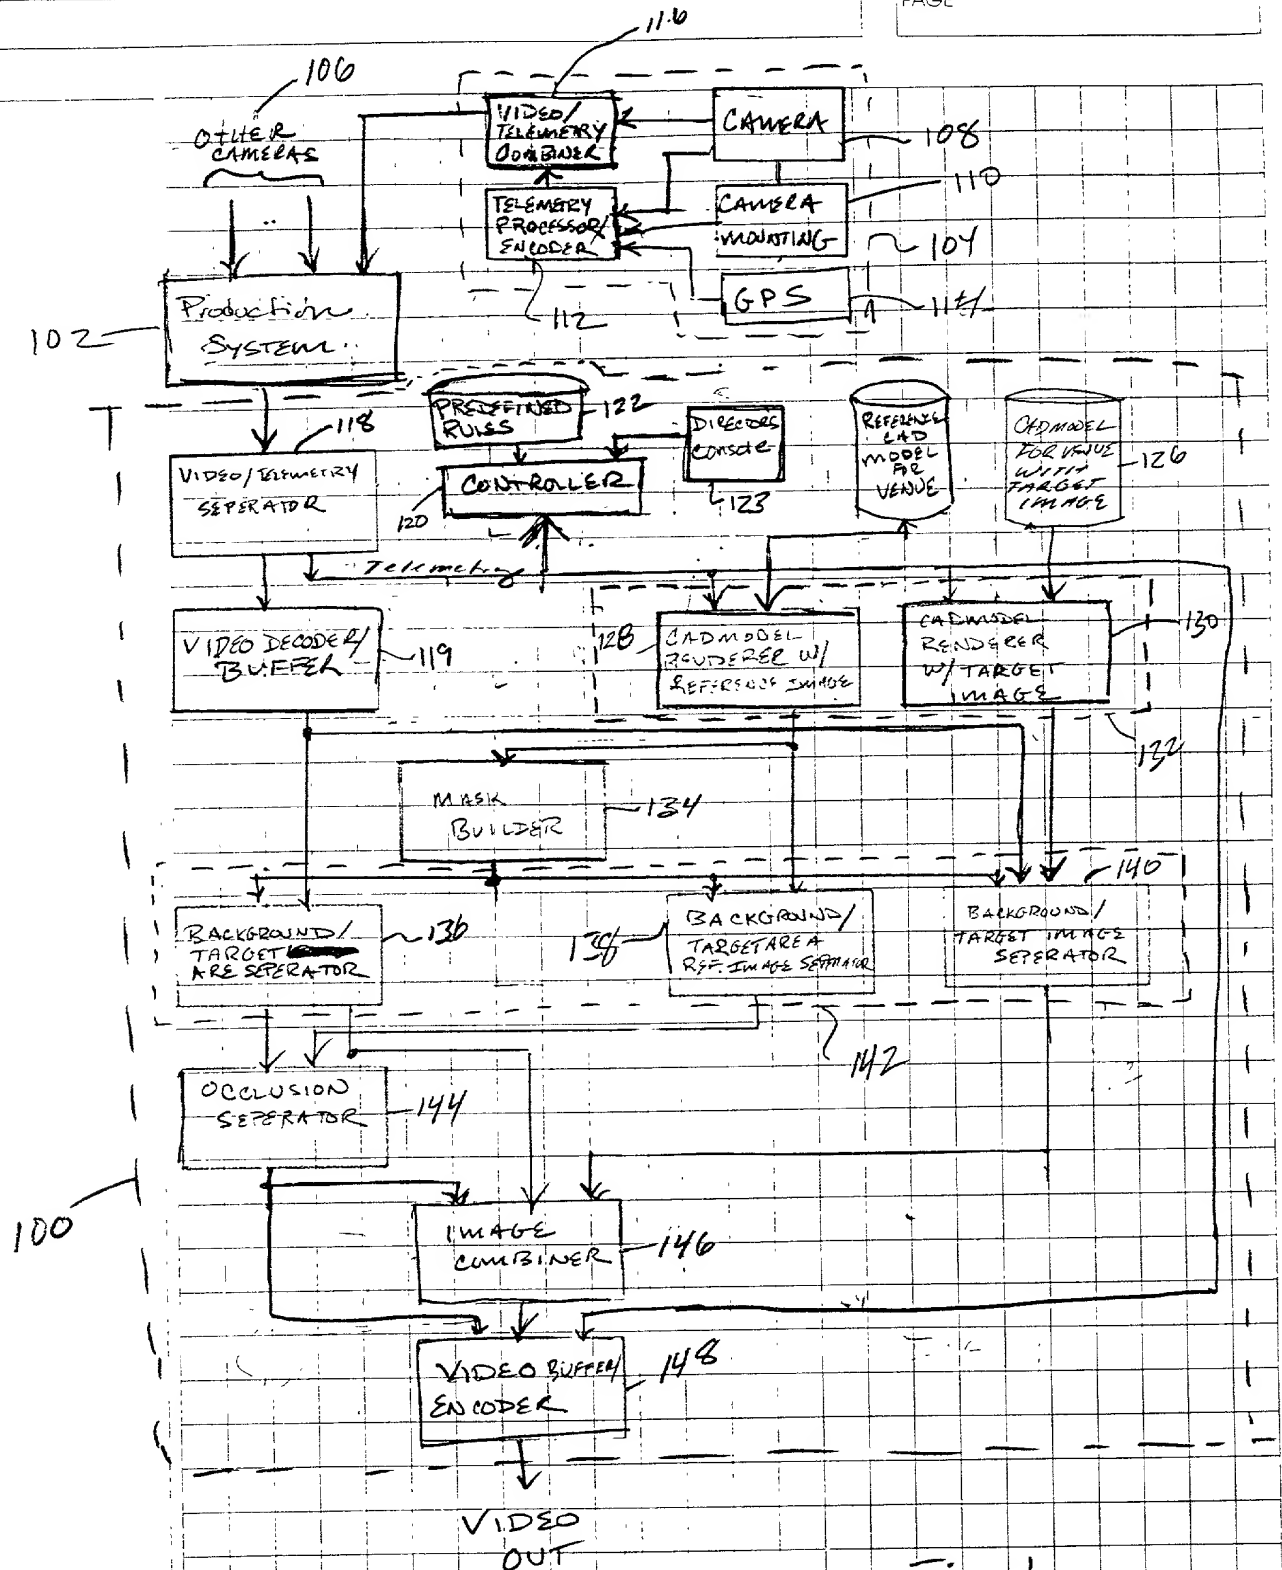 PAGE
116
106
OTHER
CAMERAS
VIDEO/
TELEMETRY
COMBINER
CAMERA
108
110
TELEMETRY
PROCESSOR/
ENCODER
CAMERA
MOUNTING
104
112
GPS
114
102
Production
SYSTEM
118
PREDEFINED
RULES
122
DIRECTORS
console
123
REFERENCE
CAD
MODEL
FOR
VENUE
CADMODEL
FOR VENUE
WITH
TARGET
IMAGE
126
VIDEO/TELEMETRY
SEPERATOR
CONTROLLER
120
Telemetry
VIDEO DECODER/
BUFFER
119
128
CADMODEL
RENDERER W/
REFERENCE IMAGE
CADMODEL
RENDERER
W/TARGET
IMAGE
130
132
MASK
BUILDER
134
140
BACKGROUND/
TARGET
ARE SEPERATOR
136
138
BACKGROUND/
TARGET AREA
REF. IMAGE SEPERATOR
BACKGROUND/
TARGET IMAGE
SEPERATOR
142
OCCLUSION
SEPERATOR
144
100
IMAGE
COMBINER
146
VIDEO BUFFER/
ENCODER
148
VIDEO
OUT